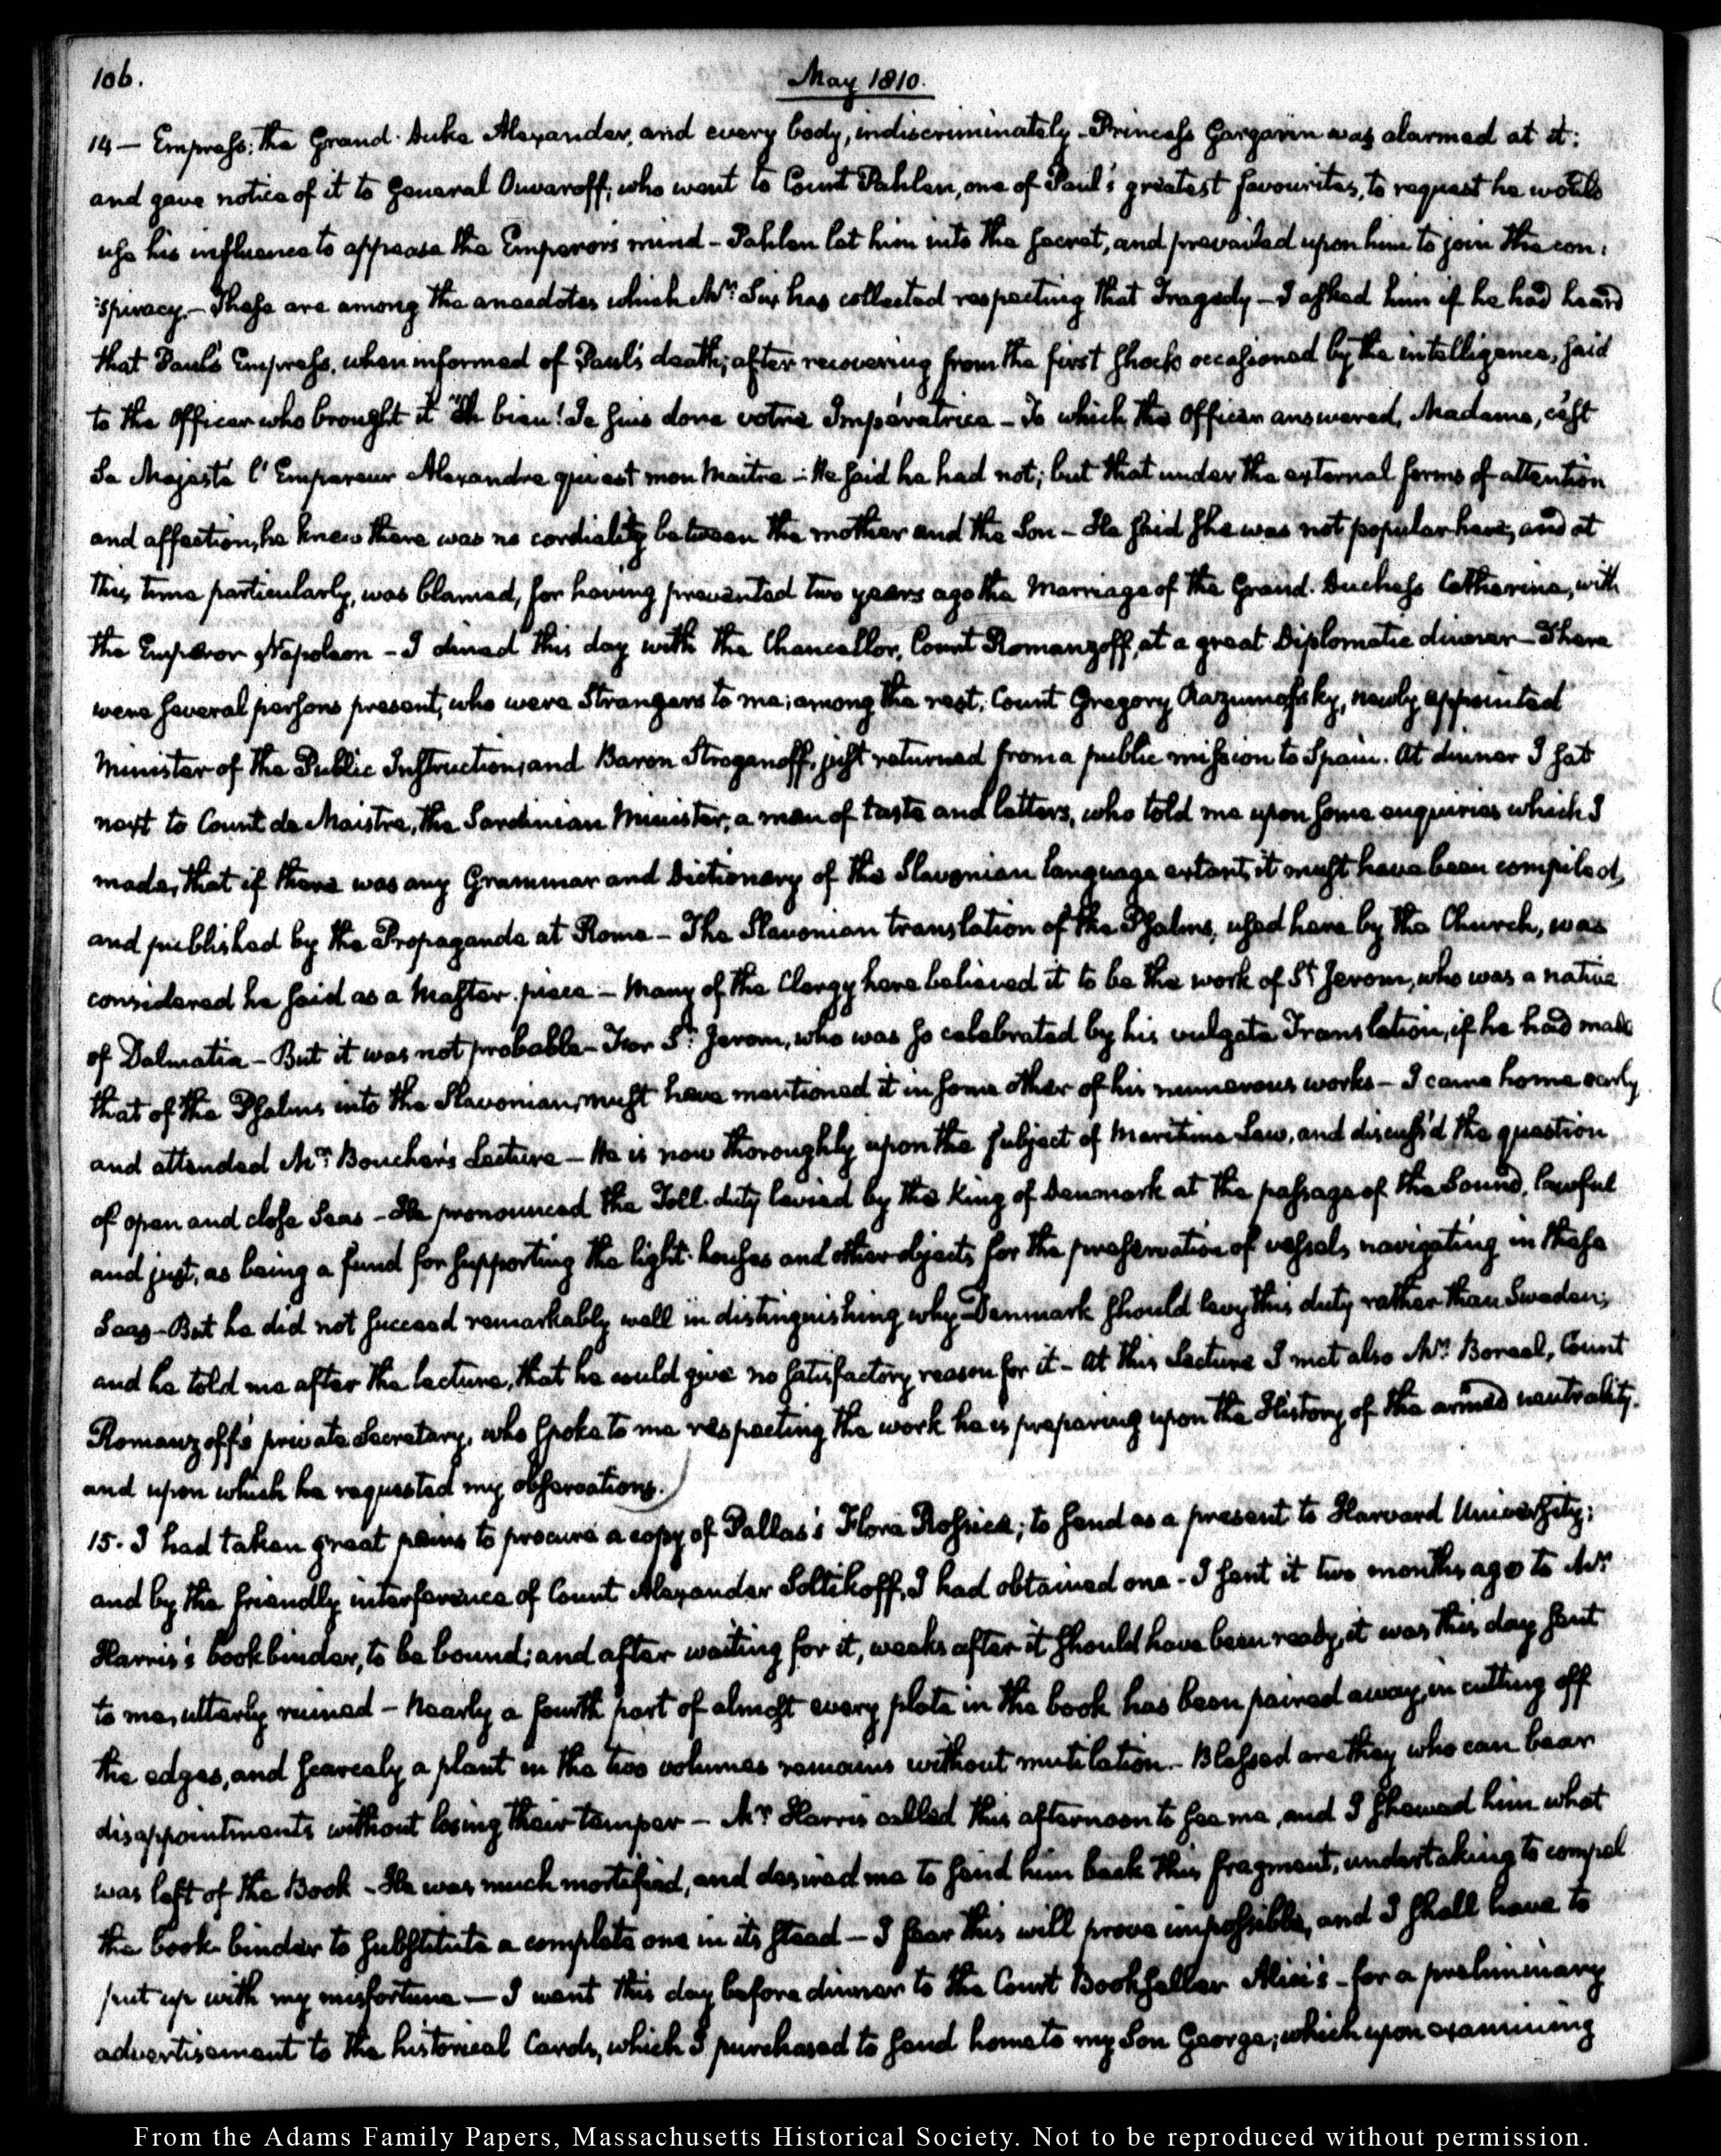 106.
May 1810.
14 — Empress: the Grand-Duke Alexander, and every body, indiscriminately. Princess Gargarin was alarmed at it:
and gave notice of it to General Ouwaroff; who went to Count Pahlen, one of Paul's greatest favourites, to request he would
use his influence to appease the Emperor's mind - Pahlen let him into the secret, and prevailed upon him to join the con-
-spiracy. - These are among the anecdotes which Mr. Six has collected respecting that Tragedy - I asked him if he had heard
that Paul's Empress, when informed of Paul's death, after recovering from the first shock occasioned by the intelligence, said
to the Officer who brought it "Eh bien! Je suis donc votre Impératrice - To which the Officer answered, Madame, c'est
Sa Majesté l'Empereur Alexandre qui est mon Maitre - He said he had not; but that under the external forms of attention
and affection, he knew there was no cordiality between the mother and the Son - He said she was not popular here, and at
this time particularly, was blamed, for having prevented two years ago the Marriage of the Grand-Duchess Catherine, with
the Emperor Napoleon - I dined this day with the Chancellor, Count Romanzoff, at a great Diplomatic dinner - There
were several persons present, who were Strangers to me; among the rest, Count Gregory Razumofsky, newly appointed
Minister of the Public Instruction, and Baron Stroganoff, just returned from a public mission to Spain. At dinner I sat
next to Count de Maistre, the Sardinian Minister, a man of taste and letters, who told me upon some enquiries which I
made, that if there was any Grammar and Dictionary of the Slavonian language extant, it must have been compiled,
and published by the Propaganda at Rome - The Slavonian translation of the Psalms, used here by the Church, was
considered he said as a Master-piece - Many of the Clergy here believed it to be the work of St. Jerom, who was a native
of Dalmatia - But it was not probable - For St. Jerom, who was so celebrated by his vulgate Translation, if he had made
that of the Psalms into the Slavonian, must have mentioned it in some other of his numerous works - I came home early
and attended Mr. Boucher's Lecture - He is now thoroughly upon the subject of Maritime Law, and discuss'd the question
of open and close Seas - He pronounced the Toll-duty levied by the King of Denmark at the passage of the Sound, lawful
and just, as being a fund for supporting the light-houses and other objects for the preservation of vessels navigating in these
Seas - But he did not succeed remarkably well in distinguishing why Denmark should levy this duty rather than Sweden;
and he told me after the lecture, that he could give no satisfactory reason for it - At this Lecture I met also Mr. Boreal, Count
Romanzoff's private Secretary, who spoke to me respecting the work he is preparing upon the History of the armed neutrality.
and upon which he requested my observations.
15. I had taken great pains to procure a copy of Pallas's Flora Rossica; to send as a present to Harvard University;
and by the friendly interference of Count Alexander Soltikoff, I had obtained one - I sent it two months ago to Mr.
Harris's bookbinder, to be bound; and after waiting for it, weeks after it should have been ready, it was this day sent
to me, utterly ruined - Nearly a fourth part of almost every plate in the book has been paired away, in cutting off
the edges, and scarcely a plant in the two volumes remains without mutilation. - Blessed are they who can bear
disappointments without losing their temper - Mr. Harris called this afternoon to see me, and I shewed him what
was left of the Book - He was much mortified, and desired me to send him back this fragment, undertaking to compel
the book-binder to substitute a complete one in its stead - I fear this will prove impossible, and I shall have to
put up with my misfortune — I went this day before dinner to the Court Bookseller Alici's - for a preliminary
advertisement to the historical Cards, which I purchased to send home to my Son George; which upon examining
From the Adams Family Papers, Massachusetts Historical Society. Not to be reproduced without permission.